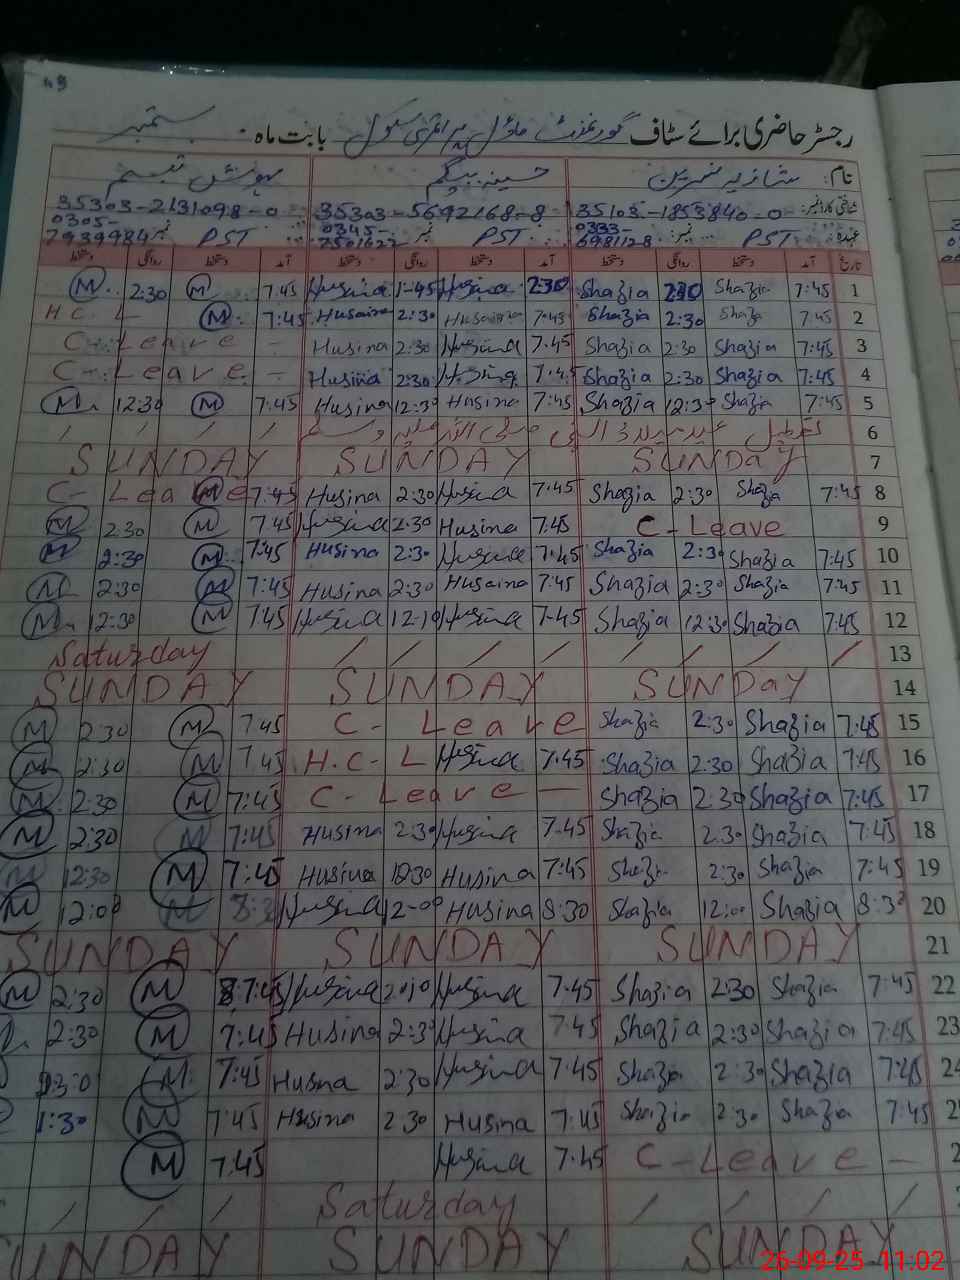 رجسٹر حاضری برائے سٹاف گورنمنٹ ماڈل پرائمری سکول بابت ماہ ستمبر
نام: شازیہ نسرین حسینہ بیگم مہوش تبسم
شناختی کارڈ نمبر: 35103-1853840-0 35303-5692168-8 35303-2131098-0
عہدہ: PST نمبر: 0333-6981128 PST نمبر 0345- PST نمبر 0305-7939984
تاریخ آمد دستخط روانگی دستخط آمد دستخط روانگی دستخط آمد دستخط روانگی دستخط
M 2:30 M 7:45 Husina 1:45 Husina 2:30 Shazia 2:30 Shazia 7:45 1
H.C-L M 7:45 Husaina 2:30 Husaina 7:45 Shazia 2:30 Shazia 7:45 2
C-Leave - Husina 2:30 Husina 7:45 Shazia 2:30 Shazia 7:45 3
C-Leave - Husina 2:30 Husina 7:45 Shazia 2:30 Shazia 7:45 4
M 12:30 M 7:45 Husina 12:30 Husina 7:45 Shazia 12:30 Shazia 7:45 5
تعطیل عید میلاد النبی صلی اللہ علیہ وسلم / / / / 6
SUNDAY SUNDAY SUNDay 7
C-Leave M 7:45 Husina 2:30 Husina 7:45 Shazia 2:30 Shazia 7:45 8
M 2:30 M 7:45 Husina 2:30 Husina 7:45 C-Leave 9
M 2:30 M 7:45 Husina 2:30 Husina 7:45 Shazia 2:30 Shazia 7:45 10
M 2:30 M 7:45 Husina 2:30 Husaina 7:45 Shazia 2:30 Shazia 7:45 11
M 12:30 M 7:45 Husina 12-10 Husina 7:45 Shazia 12:30 Shazia 7:45 12
Saturday / / / / / / / / 13
SUNDAY SUNDAY SUNDay 14
M 2:30 M 7:45 C-Leave Shazia 2:30 Shazia 7:45 15
M 2:30 M 7:45 H.C-L Husina 7:45 Shazia 2:30 Shazia 7:45 16
M 2:30 M 7:45 C-Leave - Shazia 2:30 Shazia 7:45 17
M 2:30 M 7:45 Husina 2:30 Husina 7:45 Shazia 2:30 Shazia 7:45 18
M 12:30 M 7:45 Husina 12:30 Husina 7:45 Shazia 2:30 Shazia 7:45 19
M 12:00 M 8:3 Husina 12-00 Husina 8:30 Shazia 12:00 Shazia 8:30 20
SUNDAY SUNDAY SUNDAY 21
M 2:30 M 7:45 Husina Husina 7:45 Shazia 2:30 Shazia 7:45 22
2:30 M 7:45 Husina 2:30 Husina 7:45 Shazia 2:30 Shazia 7:45 23
M 7:45 Husina 2:30 Husina 7:45 Shazia 2:30 Shazia 7:45 24
1:30 M 7:45 Husina 2:30 Husina 7:45 Shazia 2:30 Shazia 7:45
M 7:45 Husina 7:45 C-Leave -
/ / / Saturday / / / /
SUNDAY SUNDAY SUNDAY
26-09-25 11:02